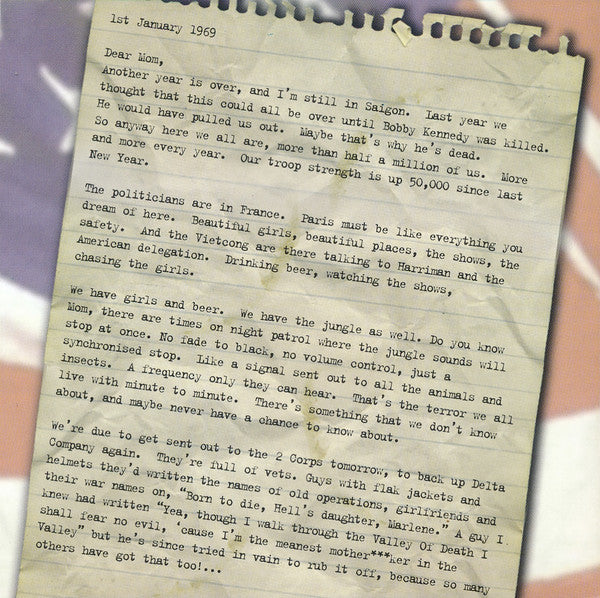 1st January 1969
Dear Mom,
Another year is over, and I'm still in Saigon. Last year we
thought that this could all be over until Bobby Kennedy was killed.
He would have pulled us out. Maybe that's why he's dead.
So anyway here we all are, more than half a million of us. More
and more every year. Our troop strength is up 50,000 since last
New Year.
The politicians are in France. Paris must be like everything you
dream of here. Beautiful girls, beautiful places, the shows, the
safety. And the Vietcong are there talking to Harriman and the
American delegation. Drinking beer, watching the shows,
chasing the girls.
We have girls and beer. We have the jungle as well. Do you know
Mom, there are times on night patrol where the jungle sounds will
stop at once. No fade to black, no volume control, just a
synchronised stop. Like a signal sent out to all the animals and
insects. A frequency only they can hear. That's the terror we all
live with minute to minute. There's something that we don't know
about, and maybe never have a chance to know about.
We're due to get sent out to the 2 Corps tomorrow, to back up Delta
Company again. They're full of vets. Guys with flak jackets and
helmets they'd written the names of old operations, girlfriends and
their war names on, "Born to die, Hell's daughter, Marlene." A guy I
knew had written "Yea, though I walk through the Valley Of Death I
shall fear no evil, 'cause I'm the meanest mother***ker in the
Valley" but he's since tried in vain to rub it off, because so many
others have got that too!...